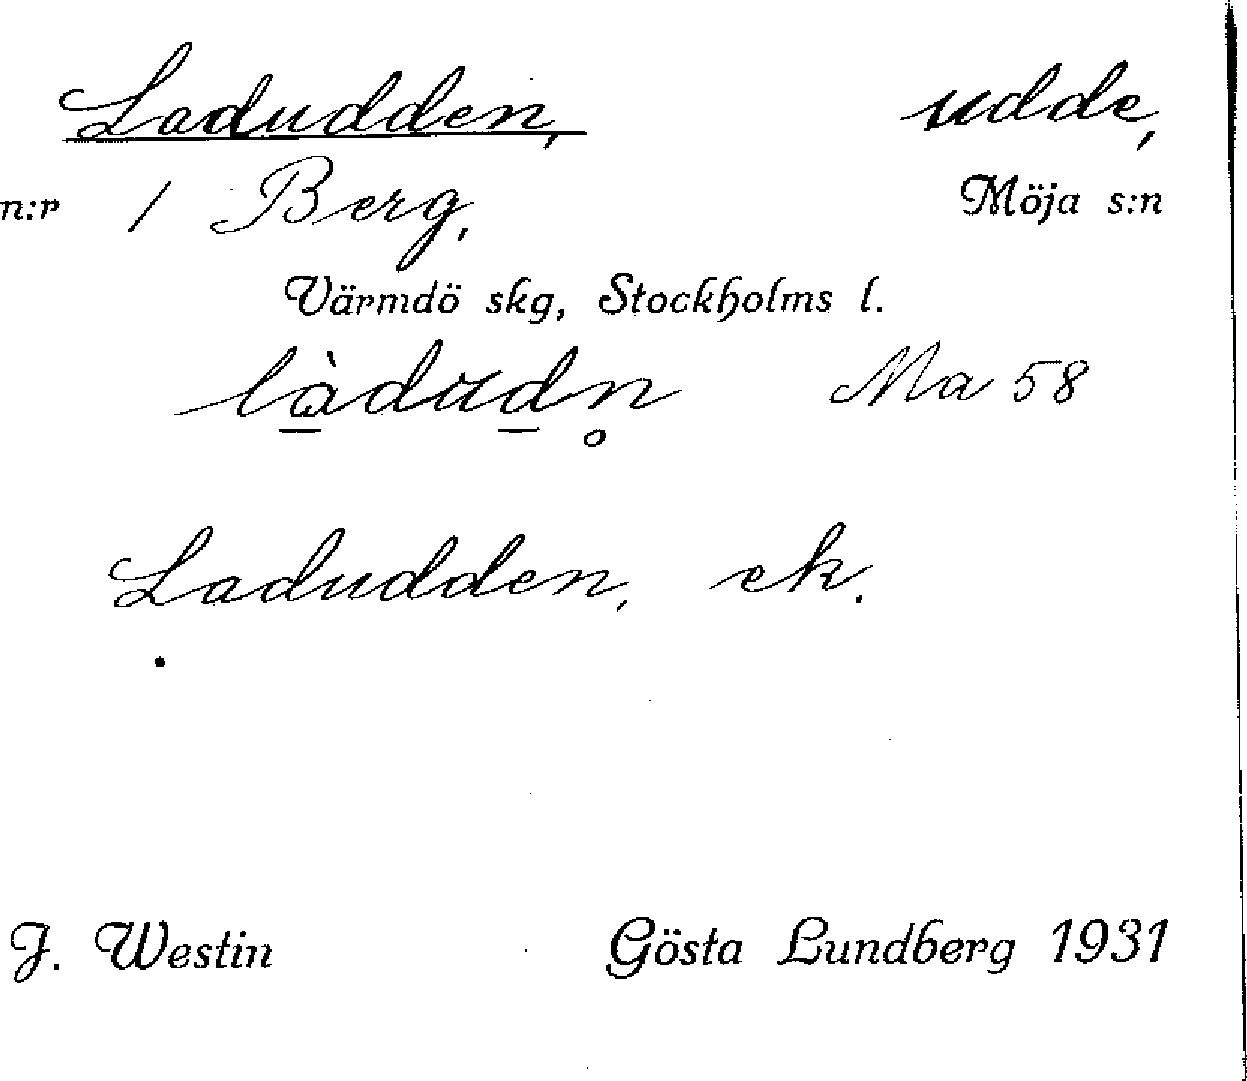 Ladudden, udde,
n:r 1 Berg, Möja s:n
Värmdö skg, Stockholms l.
là̱duḏn̥ Ma 58
Ladudden, ek.
J. Westin Gösta Lundberg 1931